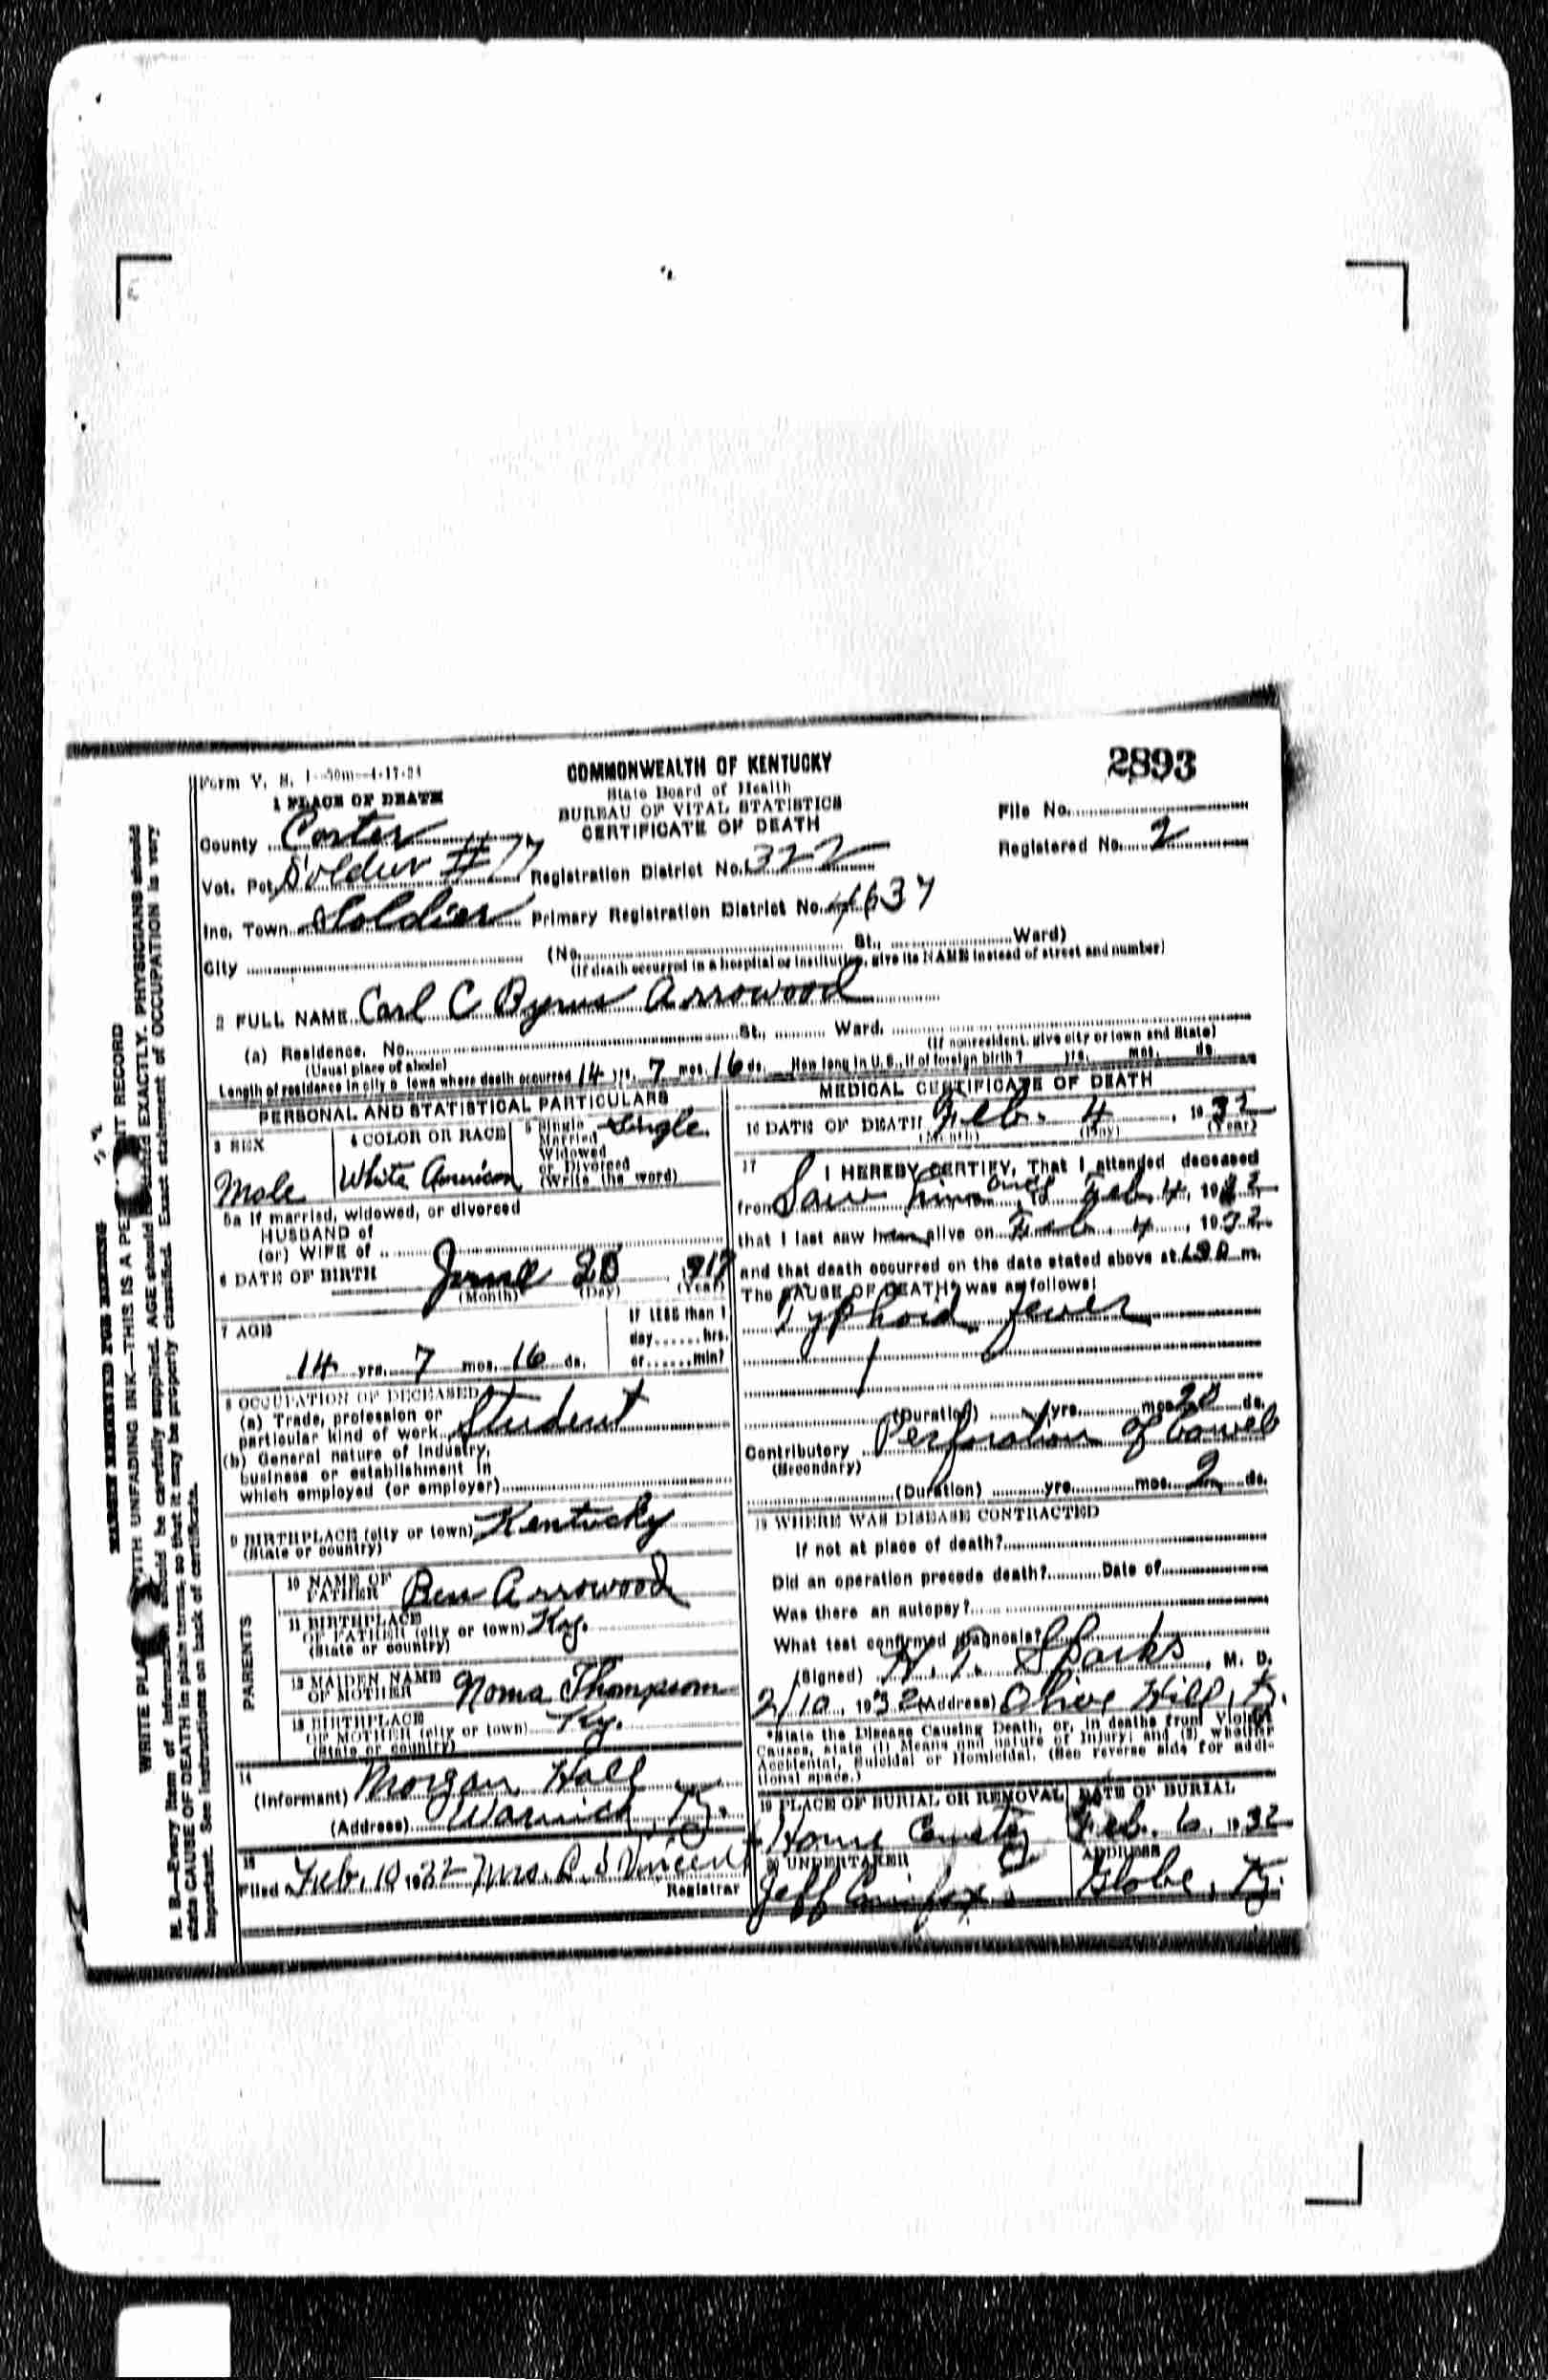 Form V. S. 1-50m-4-17-24
COMMONWEALTH OF KENTUCKY
State Board of Health
BUREAU OF VITAL STATISTICS
CERTIFICATE OF DEATH
2893
File No.
Registered No. 2
1 PLACE OF DEATH
County Carter
Vot. Pct. Soldier #77 Registration District No. 322
Inc. Town Soldier Primary Registration District No. 4637
City (No. St., Ward)
(If death occurred in a hospital or institution, give its NAME instead of street and number)
2 FULL NAME Carl C Byrns Arrowood
(a) Residence. No. St., Ward.
(Usual place of abode) (If nonresident, give city or town and State)
Length of residence in city or town where death occurred 14 yrs. 7 mos. 16 ds. How long in U.S., if of foreign birth? yrs. mos. ds.
PERSONAL AND STATISTICAL PARTICULARS
3 SEX
Male
4 COLOR OR RACE
White American
5 Single Married Widowed or Divorced (Write the word)
Single
5a If married, widowed, or divorced
HUSBAND of
(or) WIFE of
6 DATE OF BIRTH June 20
(Month) (Day) (Year)
7 AGE
14 yrs. 7 mos. 16 ds.
If LESS than 1 day hrs. or min?
8 OCCUPATION OF DECEASED
(a) Trade, profession or particular kind of work Student
(b) General nature of industry, business or establishment in which employed (or employer)
9 BIRTHPLACE (city or town) Kentucky
(State or country)
PARENTS
10 NAME OF FATHER Ben Arrowood
11 BIRTHPLACE OF FATHER (city or town) Ky.
(State or country)
12 MAIDEN NAME OF MOTHER Noma Thompson
13 BIRTHPLACE OF MOTHER (city or town) Ky.
(State or country)
14
(Informant) Morgan Hall
(Address) Warnick, Ky.
15
Filed Feb. 10, 1932 Mrs. R. S. Vincent
Registrar
MEDICAL CERTIFICATE OF DEATH
16 DATE OF DEATH Feb. 4, 1932
(Month) (Day) (Year)
17 I HEREBY CERTIFY, That I attended deceased
from Saw him once Feb. 4, 1932
that I last saw him alive on Feb. 4, 1932
and that death occurred on the date stated above at m.
The CAUSE OF DEATH* was as follows:
Typhoid fever
(Duration) yrs. mos. 20 ds.
Contributory Perforation of bowels
(Secondary)
(Duration) yrs. mos. 2 ds.
18 WHERE WAS DISEASE CONTRACTED
If not at place of death?
Did an operation precede death? Date of
Was there an autopsy?
What test confirmed diagnosis?
(Signed) H. T. Sparks, M. D.
2/10, 1932 (Address) Olive Hill, Ky.
*State the Disease Causing Death, or, in deaths from Violent
Causes, state (1) Means and nature of Injury; and (2) whether
Accidental, Suicidal or Homicidal. (See reverse side for addi-
tional space.)
19 PLACE OF BURIAL OR REMOVAL
Home Cemetery
DATE OF BURIAL
Feb. 6, 1932
20 UNDERTAKER
Jeff
ADDRESS
Globe, Ky.
MARGIN RESERVED FOR BINDING
WRITE PLAINLY WITH UNFADING INK—THIS IS A PERMANENT RECORD
N. B.—Every item of information should be carefully supplied. AGE should be stated EXACTLY. PHYSICIANS should
state CAUSE OF DEATH in plain terms, so that it may be properly classified. Exact statement of OCCUPATION is very
important. See instructions on back of certificate.